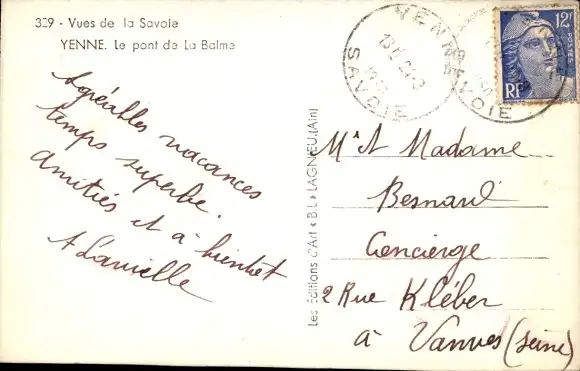 329 - Vues de la Savoie
YENNE. Le pont de La Balme
Agréables vacances
temps superbe.
Amitiés et à bientôt
YENNE
SAVOIE
YENNE
SAVOIE
12F
POSTES
RF
Les Editions d'Art « B.L » LAGNIEU.(Ain)
Mr et Madame
Besnard
Concierge
2 Rue Kléber
à Vanves (Seine)